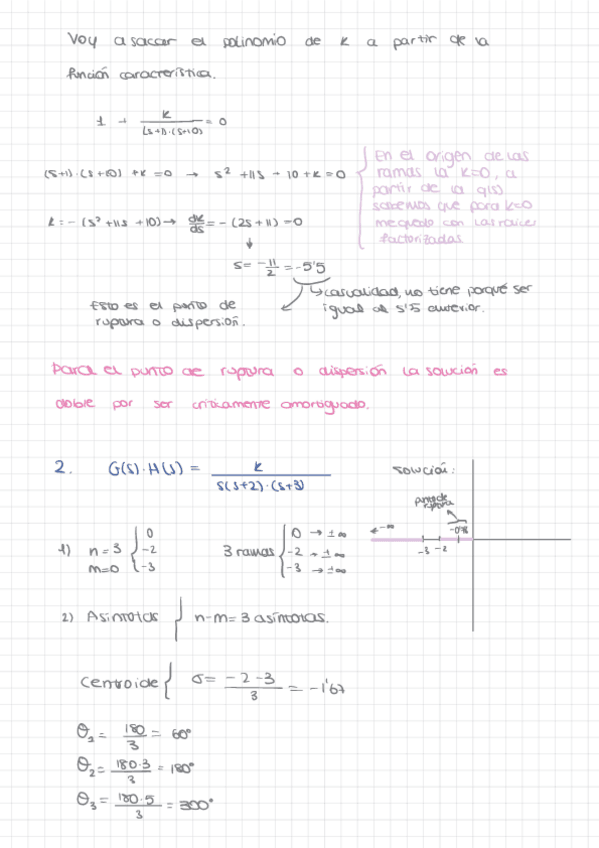 Voy a sacar el polinomio de k a partir de la
función característica.
1 + k/((s+1)·(s+10)) = 0
(s+1)·(s+10) + k = 0 → s² + 11s - 10 + k = 0
En el origen de las
ramas la k=0, a
partir de la q(s)
sabemos que para k=0
me quedo con las raíces
factorizadas
k = -(s² + 11s + 10) → dk/ds = -(2s + 11) = 0
↓
s = -11/2 = -5'5
↳ casualidad, no tiene porqué ser
igual al 5'5 anterior.
Esto es el punto de
ruptura o dispersión.
Para el punto de ruptura o dispersión la solución es
doble por ser críticamente amortiguado.
2. G(s)·H(s) = k/(s(s+2)·(s+3))
solución:
punto de
ruptura
← -∞
-3 -2
1) n = 3 { 0 -2 -3
m = 0
3 ramas { 0 → ±∞
-2 → ±∞
-3 → ±∞
2) Asíntotas { n-m = 3 asíntotas.
Centroide { σ = (-2 -3)/3 = -1'67
θ₁ = 180/3 = 60°
θ₂ = 180·3/3 = 180°
θ₃ = 180·5/3 = 300°